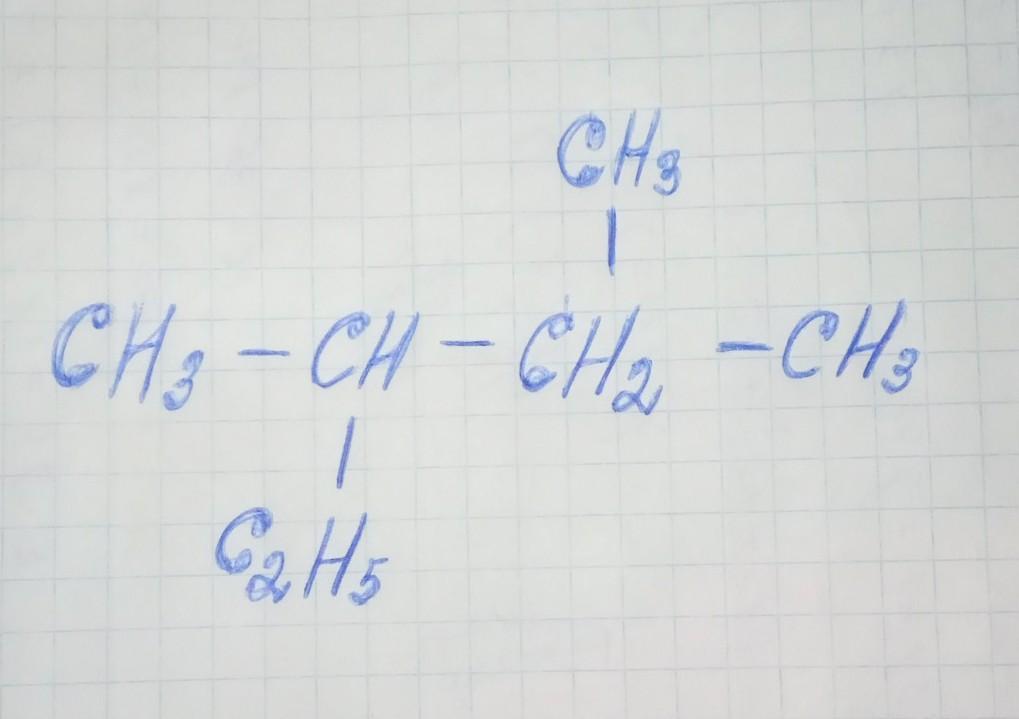 CH₃
|
CH₃ – CH – CH₂ – CH₃
|
C₂H₅